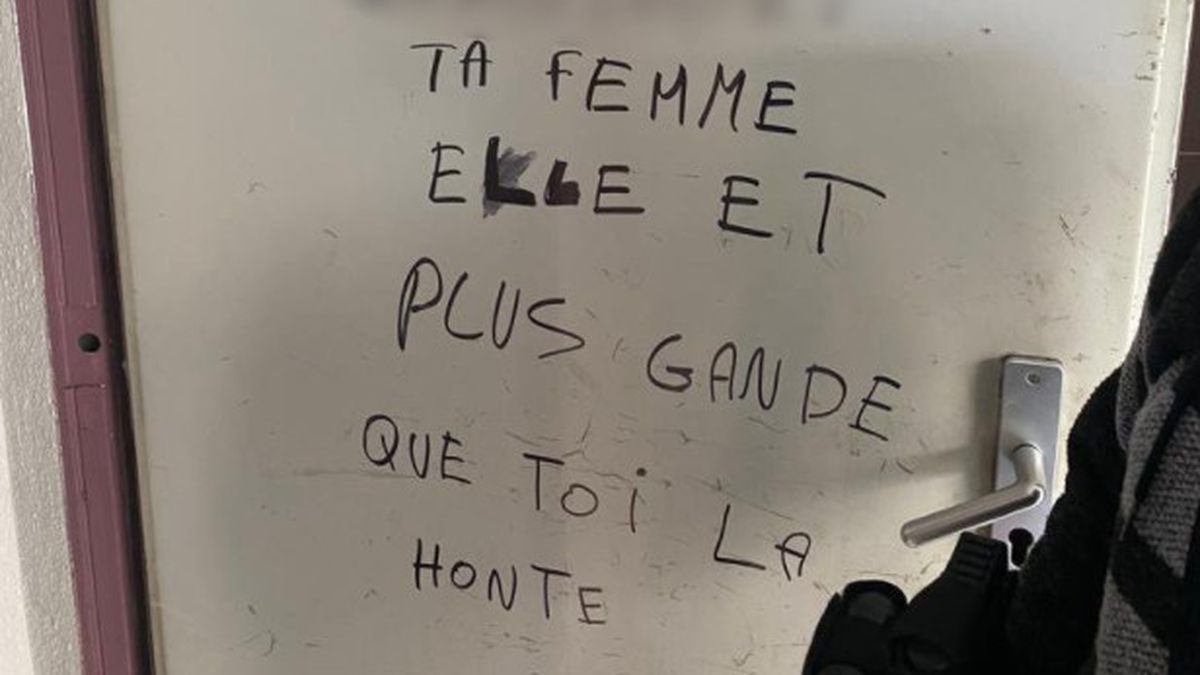 TA FEMME
ELLE ET
PLUS GANDE
QUE TOi LA
HONTE